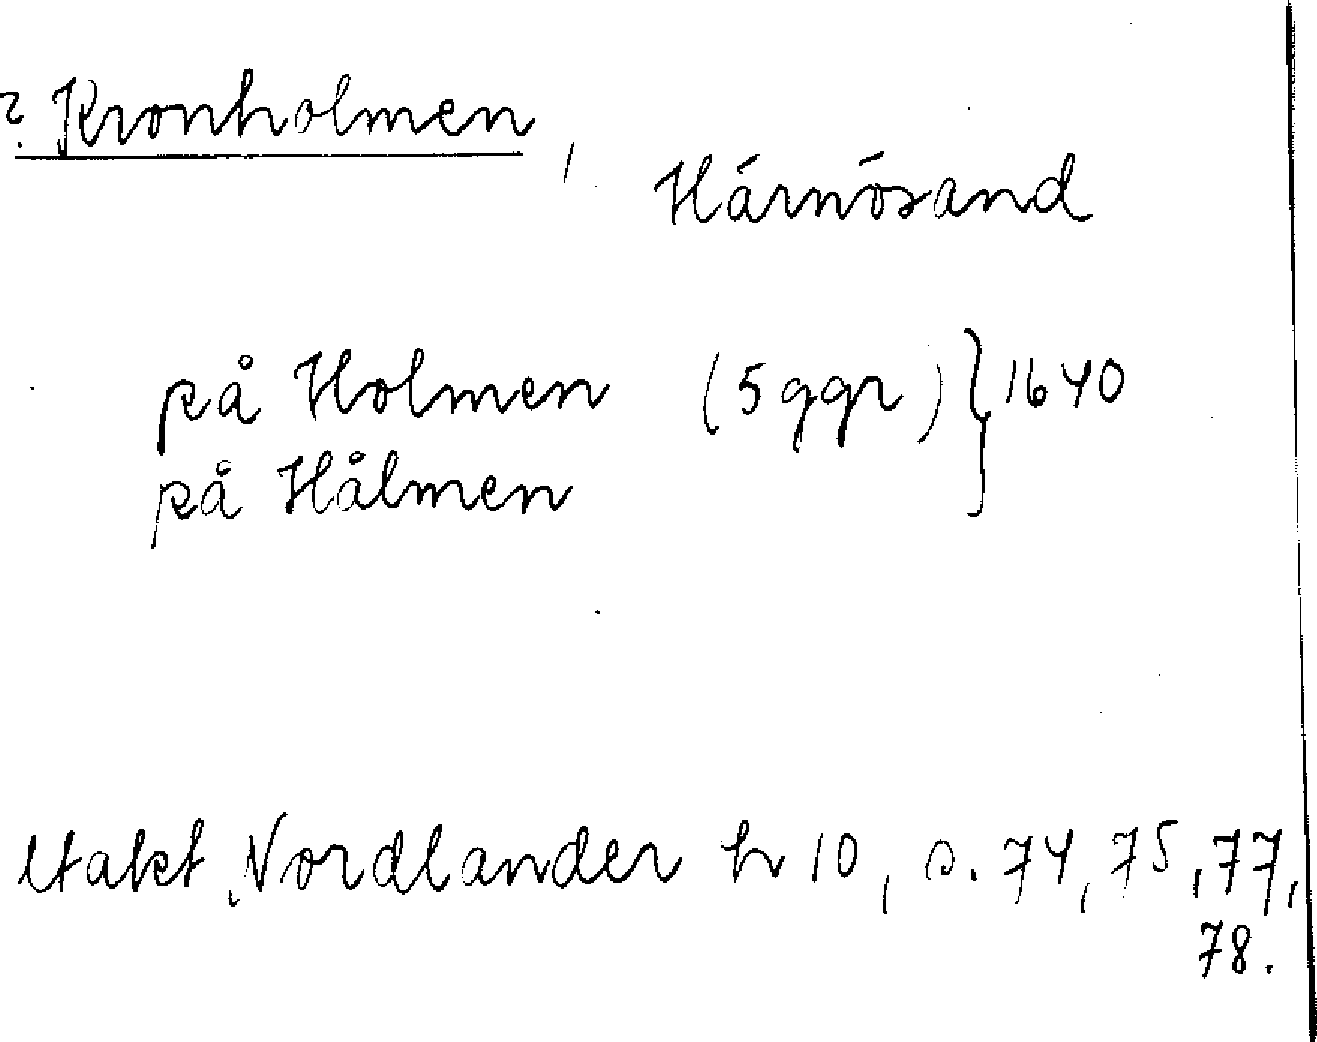 ? Kronholmen,
Härnösand
på Holmen (5 ggr) } 1640
på Hålmen
Utakt Nordlander h 10, s. 74, 75, 77,
78.